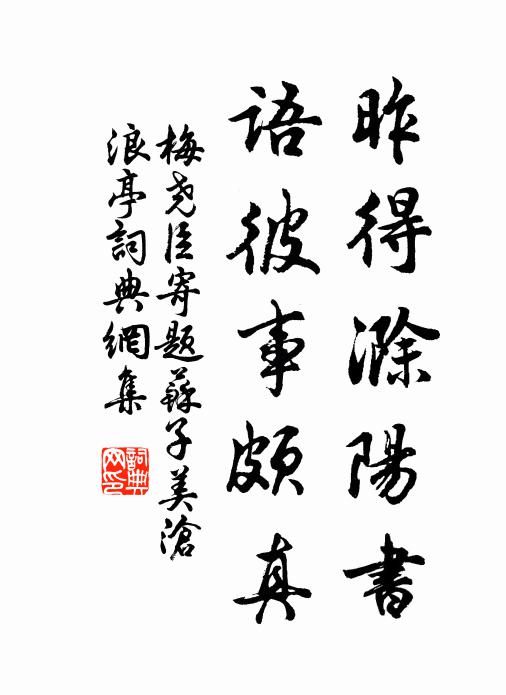 昨得滁陽書
語彼事頗真
梅尧臣寄題蘇子美滄
浪亭詞典網集
詞典
网印